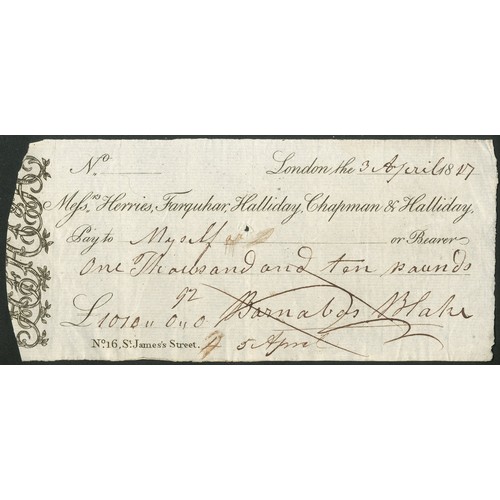 No. London, the 3 April 1817
Messrs. Herries, Farquhar, Halliday, Chapman & Halliday,
Pay to Myself or Bearer
One Thousand and ten pounds
92
£1010 " 0 " 0 Barnabas Blake
No. 16, St. James's Street. 5 April